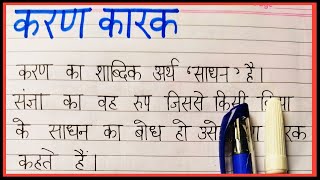 करण कारक
करण का शाब्दिक अर्थ 'साधन' है।
संज्ञा का वह रूप जिससे किसी
के साधन का बोध हो उसे
कहते हैं।